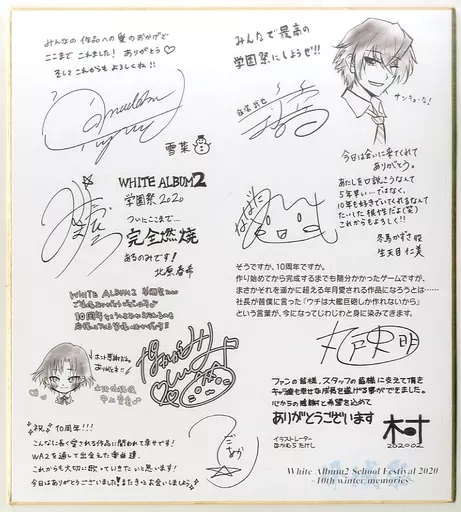 みんなの作品への愛のおかげで
ここまでこれました！ありがとう♡
そしてこれからもよろしくね！！
雪菜
みんなで最高の
学園祭にしようぜ!!
飯塚武也
サンキューな!
WHITE ALBUM2
学園祭2020
ついにここまで…
完全燃焼
あるのみです!
北原春希
今日は会いに来てくれて
ありがとう。
あたしを口説こうなんて
5年早い…ではなく、
10年も好きでいてくれるなんて
たいした根性だよ(笑)
これからもよろしく!!
冬馬かずさ役
生天目仁美
WHITE ALBUM2 学園祭
10周年
そうですか、10周年ですか。
作り始めてから完成するまでも随分かかったゲームですが、
まさかそれを遥かに超える年月愛される作品になろうとは……
社長が昔僕に言った『ウチは大艦巨砲しか作れないから』
という言葉が、今になってじわじわと身に染みてきます。
丸戸史明
ファンの皆様、スタッフの皆様に支えて頂き
キャラ達も幸せな成長を遂げる事ができました。
心からの感謝と希望を込めて
ありがとうございます
イラストレーター
なかむらたけし
2020.02
祝 10周年!!!
こんなに長く愛される作品に関われて幸せです!
WA2を通して出会えた楽曲達、
これからも大切に歌っていきたいと思います!
今日はありがとうございました!またきっとお会いしましょう
White Album2 School Festival 2020
~10th winter memories~